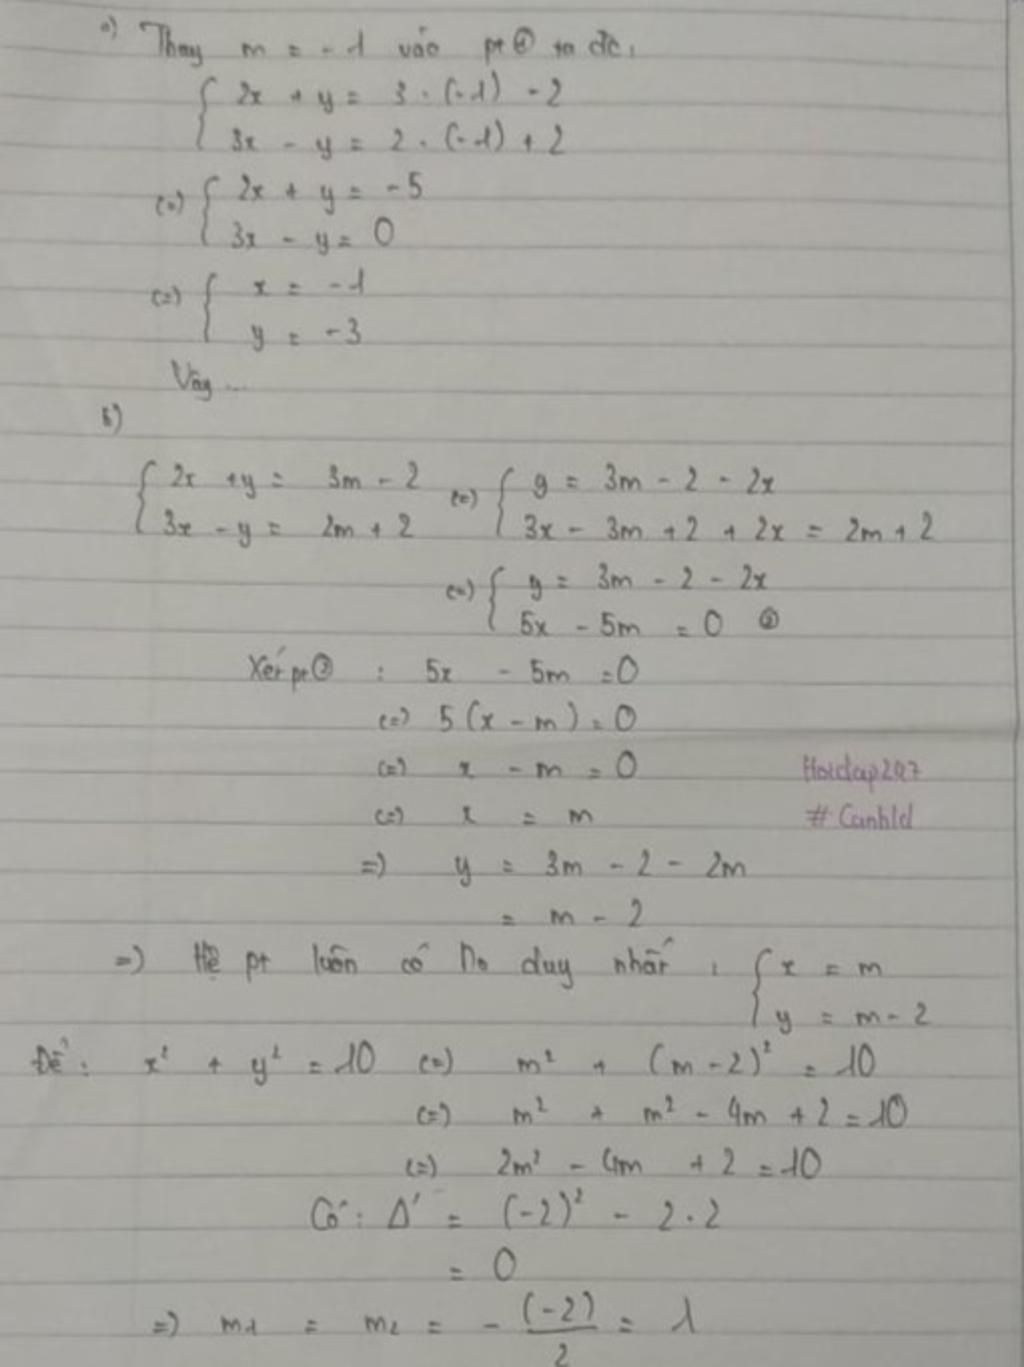 a) Thay m = -1 vào pt ① ta đc:
{ 2x + y = 3 . (-1) - 2
3x - y = 2 . (-1) + 2
(=) { 2x + y = -5
3x - y = 0
(=) { x = -1
y = -3
Vậy ...
b)
{ 2x + y = 3m - 2 (=) { y = 3m - 2 - 2x
3x - y = 2m + 2 3x - 3m + 2 + 2x = 2m + 2
(=) { y = 3m - 2 - 2x
5x - 5m = 0 ②
Xét pt ② : 5x - 5m = 0
(=) 5(x - m) = 0
(=) x - m = 0
Hoidap247
(=) x = m
# Canhld
=) y = 3m - 2 - 2m
= m - 2
=) Hệ pt luôn có no duy nhất : { x = m
y = m - 2
Để : x² + y² = 10 (=) m² + (m - 2)² = 10
(=) m² + m² - 4m + 2 = 10
(=) 2m² - 4m + 2 = 10
Có : Δ' = (-2)² - 2 . 2
= 0
=) m1 = m2 = - (-2)/2 = 1